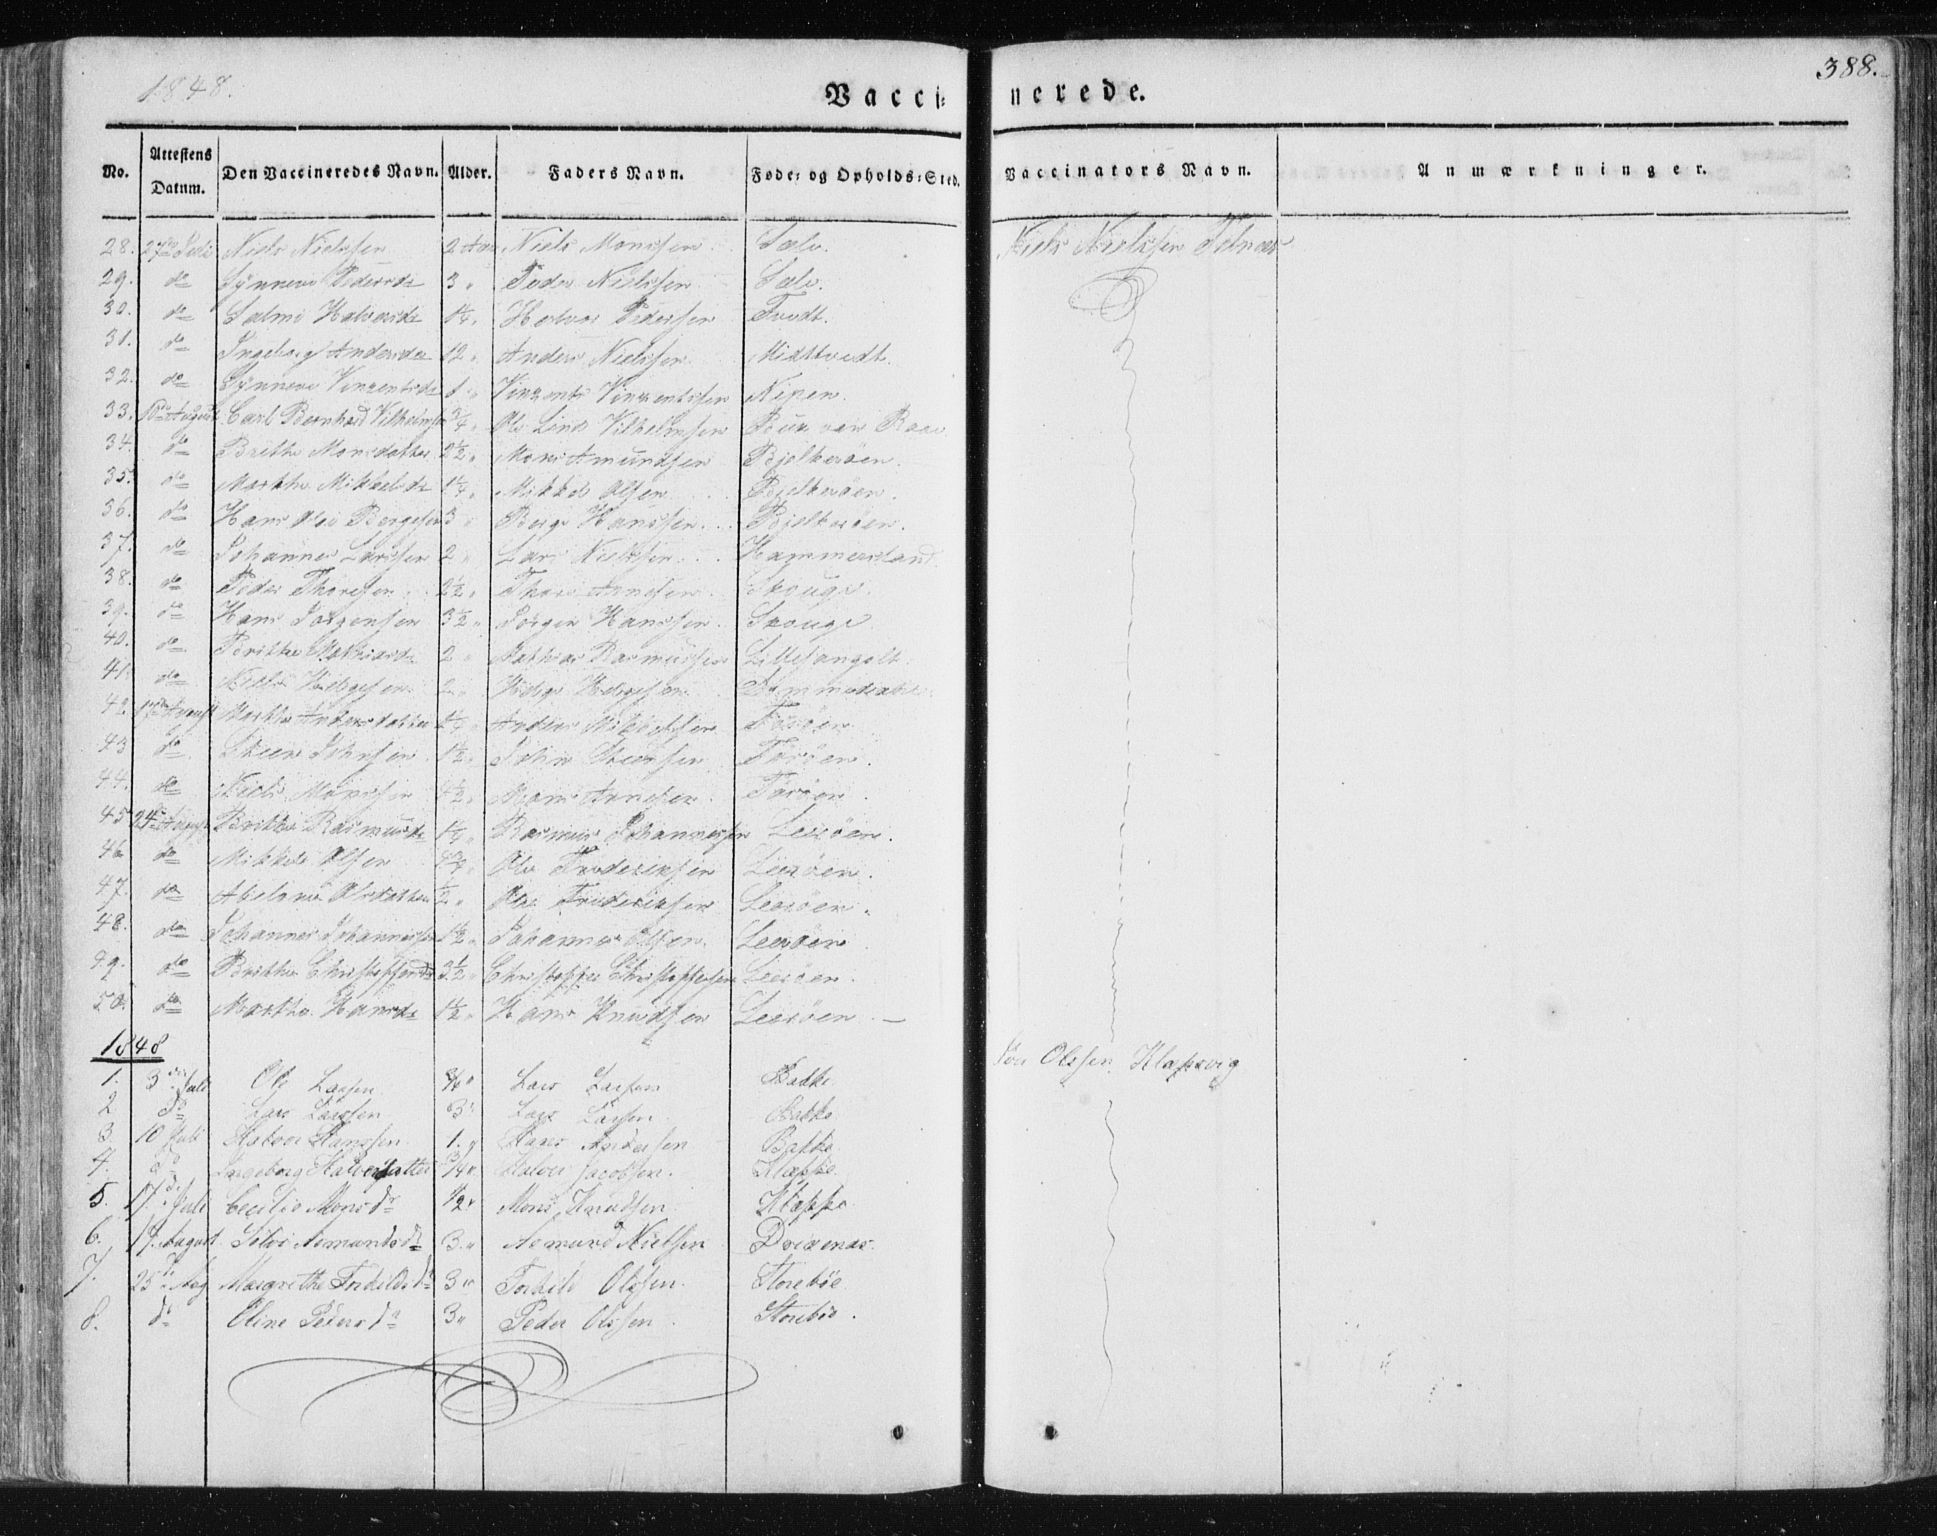 1848.
Vaccinerede.
388.
No. Attestens Datum. Den Vaccineredes Navn. Alder. Faders Navn. Føde- og Opholds-Sted. Vaccinators Navn. Anmærkninger.
28. 27de Juli Niels Nielssen 2 Aar Niels Monssen Sele. Niels Nielssen
29. do Synneve Pedersdr 3 " Peder Nielssen Sele.
30. do Salmi Halvorsdr 1¼ " Halvor Pedersen Tvedt.
31. do Ingeborg Andersdr 12 " Anders Nielssen Midttvedt
32. do Synneve Vinzentsdr 1 " Vinzents Vinzentssen Nipen.
33. August Carl Bernhard Vilhelmsen ¾ " Ole Lind Vilhelmsen
34. do Brithe Monsdatter 2½ " Mons Amundsen Bjelkerøen.
35. do Marthe Mikkelsdr 1¼ " Mikkel Olsen Bjelkerøen.
36. do Hans Olai Bergesen 3 " Berge Hanssen Bjelkerøen.
37. do Johannes Larssen 2 " Lars Nielssen Hammersland
38. do Peder Thoresen 2½ " Thore Arnesen Skouge.
39. do Hans Jørgensen 3½ " Jørgen Hanssen Skouge
40. do Brithe Mathiasdr 2 " Mathias Rasmussen Lillesangolt.
41. do Niels Helgesen 2 " Helge Helgesen
42. August Marthe Andersdatter 1¼ " Anders Mikkelsen Tørøen
43 do Steen Johnsen 1½ " John Steensen Tørøen.
44. do Niels Monssen 1½ " Mons Arnesen Tørøen.
45 24de August Brithe Rasmusdr 1¼ " Rasmus Johannessen Leerøen.
46 do Mikkel Olsen " Ole Frederiksen Leerøen.
47. do Olsdatter ½ " Ole Frideriksen Leerøen.
48. do Johannes Johannessen 1½ " Johannes Olsen Leerøen
49. do Brithe Christoffersdr 3½ " Christoffer Christoffersen Leerøen.
50. do Marthe Hansdr 1½ " Hans Knudsen Leerøen
1848
1. 3die Juli Ole Larsen " Lars Larsen Bakke Jon Olssen Klapsvig
2 do Lars Larssen 3 " Lars Larsen Bakke
3. 10 Juli Halvor Hanssen 1. " Hans Andersen Bakke
4. do Ingeborg Halvorsdatter ¾ " Halvor Jacobsen. Klappe
5. 17. Juli Cecilie Monsdr ½ " Mons Knudsen Klappe
6. 17. August Asmundsdr 3. " Asmund Nielsen Drivenes.
7. 25de Aug Margrethe Torkildsdr 3 " Torkild Olssen. Storebøe
8. do Oline Pedersdr 3 " Peder Olssen Storebøe.